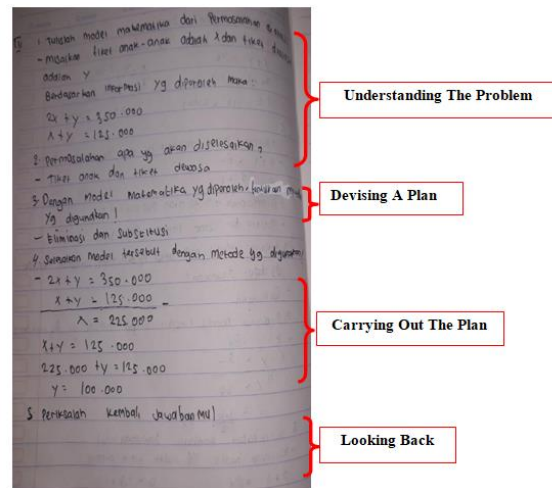 1. Tulislah model matematika dari Permasalahan
- Misalkan tiket anak-anak adalah x dan tiket
adalah y
Berdasarkan informasi yg diperoleh maka:
2x + y = 350.000
x + y = 125.000
2. Permasalahan apa yg akan diselesaikan?
- Tiket anak dan tiket dewasa
3. Dengan model matematika yg diperoleh,
yg digunakan!
- Eliminasi dan Substitusi
4. Selesaikan model tersebut dengan metode yg digunakan
- 2x + y = 350.000
x + y = 125.000 -
x = 225.000
x + y = 125.000
225.000 + y = 125.000
y = 100.000
5 Periksalah kembali jawabanmu!
Understanding The Problem
Devising A Plan
Carrying Out The Plan
Looking Back